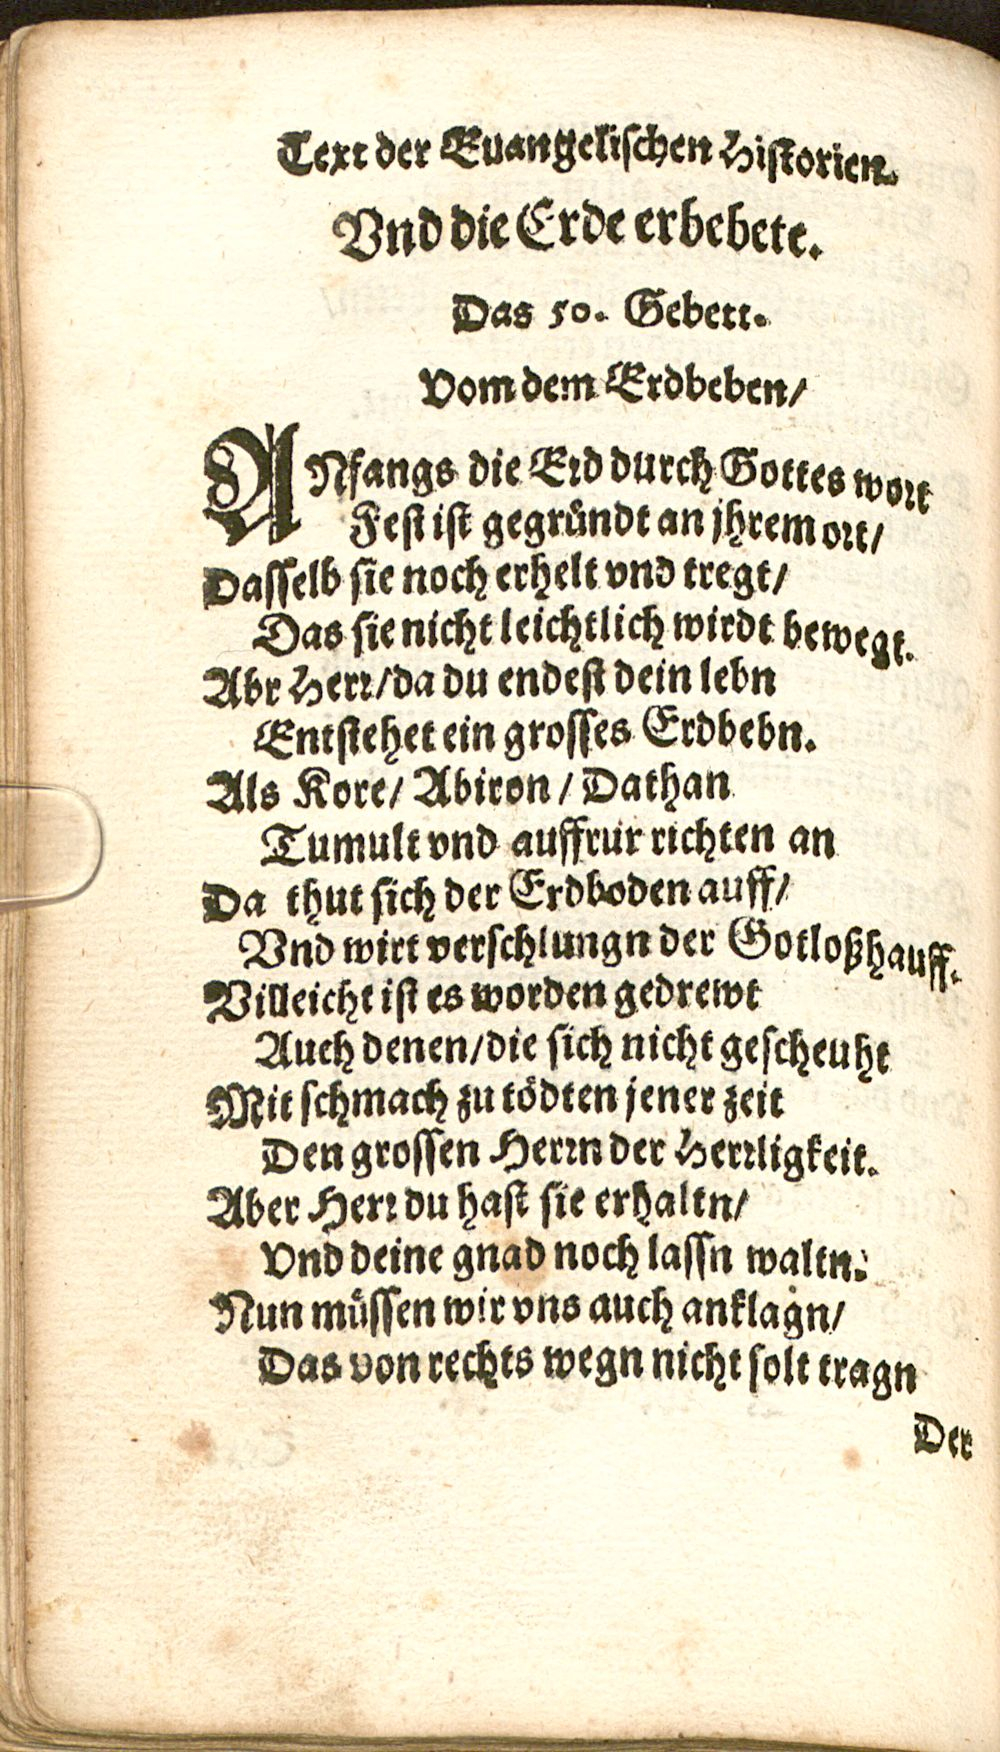 Text der Euangelischen Historien.
Vnd die Erde erbebete.
Das 50. Gebett.
Vom dem Erdbeben/
ANfangs die Erd durch Gottes wort
Fest ist gegründt an jhrem ort/
Dasselb sie noch erhelt vnd tregt/
Das sie nicht leichtlich wirdt bewegt.
Abr Herr/da du endest dein lebn
Entstehet ein grosses Erdbebn.
Als Kore/ Abiron/ Dathan
Tumult vnd auffrur richten an
Da thut sich der Erdboden auff/
Vnd wirt verschlungn der Gotloßhauff.
Villeicht ist es worden gedrewt
Auch denen/die sich nicht gescheuht
Mit schmach zu tödten jener zeit
Den grossen Herrn der Herrligkeit.
Aber Herr du hast sie erhaltn/
Vnd deine gnad noch lassn waltn.
Nun müssen wir vns auch anklagn/
Das von rechts wegn nicht solt tragn
Der